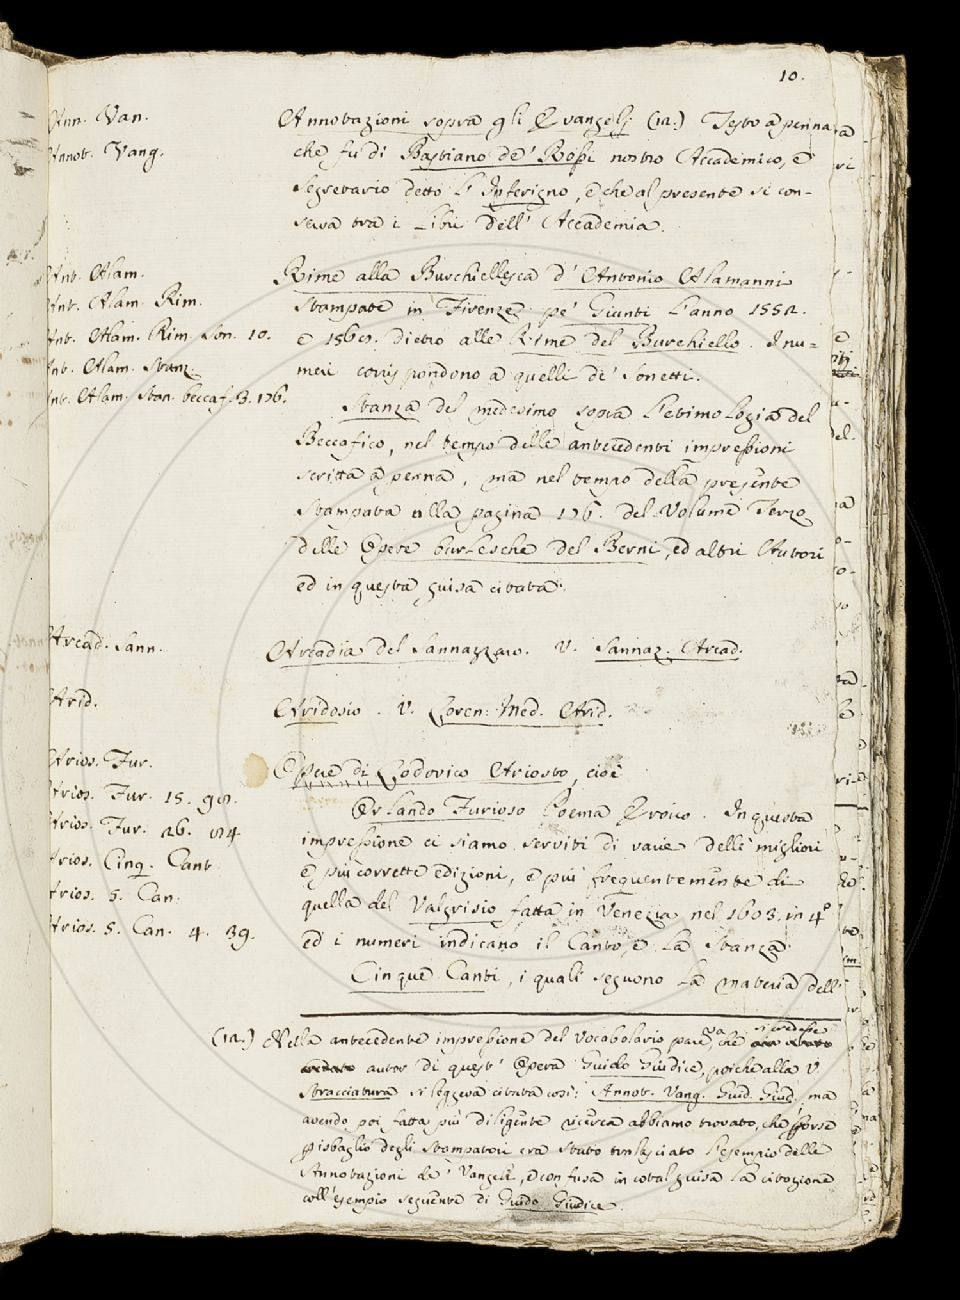 10.
Ann. Van.
Annot. Vang.
Annotazioni sopra gli Evangelj (12.) Testo a penna
che fù di Bastiano de' Rossi nostro Accademico, e
Segretario detto l'Inferigno, e che al presente si con-
serva tra i Libri dell' Accademia.
Ant. Alam.
Ant. Alam. Rim.
Ant. Alam. Rim. son. 10.
Ant. Alam. Stanz.
Ant. Alam. Stan. beccaf. 3. 176.
Rime alla Burchiellesca d' Antonio Alamanni
stampate in Firenze pe' Giunti l'anno 1552.
e 1568. dietro alle Rime del Burchiello. I nu-
meri corrispondono a quelli de' Sonetti.
Stanza del medesimo sopra l'etimologia del
Beccafico, nel tempo delle antecedenti impressioni
scritta a penna, ma nel tempo della presente
stampata alla pagina 176. del Volume Terzo
delle Opere burlesche del Berni, ed altri Autori
ed in questa guisa citata.
Arcad. Sann.
Arcadia del Sannazzaro. V. Sannaz. Arcad.
Arid.
Aridosio. V. Loren. Med. Arid.
Arios. Fur.
Arios. Fur. 15. 98.
Arios. Fur. 26. 124
Arios. Cinq. Cant.
Arios. 5. Can.
Arios. 5. Can. 4. 39.
Opere di Lodovico Ariosto, cioè
Orlando Furioso Poema Eroico. In questa
impressione ci siamo serviti di varie delle migliori
e più corrette edizioni, e più frequentemente di
quella del Valgrisio fatta in Venezia nel 1603. in 4°
ed i numeri indicano il Canto, e la Stanza.
Cinque Canti, i quali seguono la materia dell
(12.) Nella antecedente impressione del Vocabolario pare va, che si credesse
autor di quest' Opera Guido Giudice, poiche alla V.
Stracciatura si leggeva citata così: Annot. Vang. Guid. Giud. ma
avendo poi fatta più diligente ricerca abbiamo trovato, che forse
p isbaglio degli Stampatori era stato tralasciato l'esempio delle
Annotazioni de' Vangeli, e confusa in cotal guisa la citazione
coll'esempio seguente di Guido Giudice.